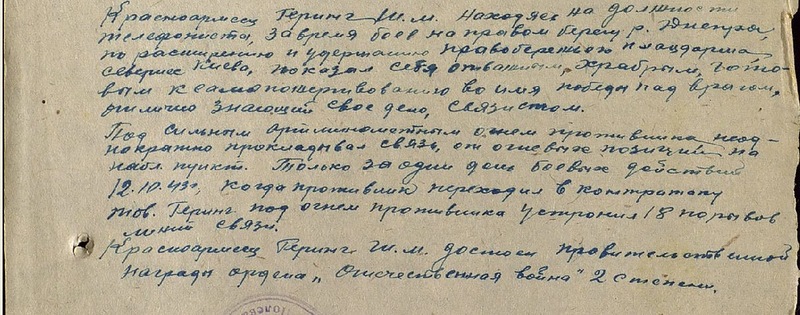 Красноармеец Геринг Ш.М. находясь на должности
телефониста, за время боев на правом берегу р. Днепра,
по расширению и удержанию правобережного плацдарма
севернее Киева, показал себя отважным, храбрым, гото-
вым к самопожертвованию во имя победы над врагом,
отлично знающий свое дело, связистом.
Под сильным артминометным огнем противника неод-
нократно прокладывал связь, от огневых позиций на
набл. пункт. Только за один день боевых действий
12.10.43г, когда противник переходил в контратаку
тов. Геринг под огнем противника устронил 18 порывов
линий связи.
Красноармеец Геринг Ш.М. достоен правительственной
награды ордена „Отечественная война" 2 степени.
Полева